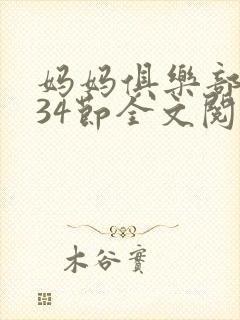 妈妈俱樂部
34節全文閱
木谷實